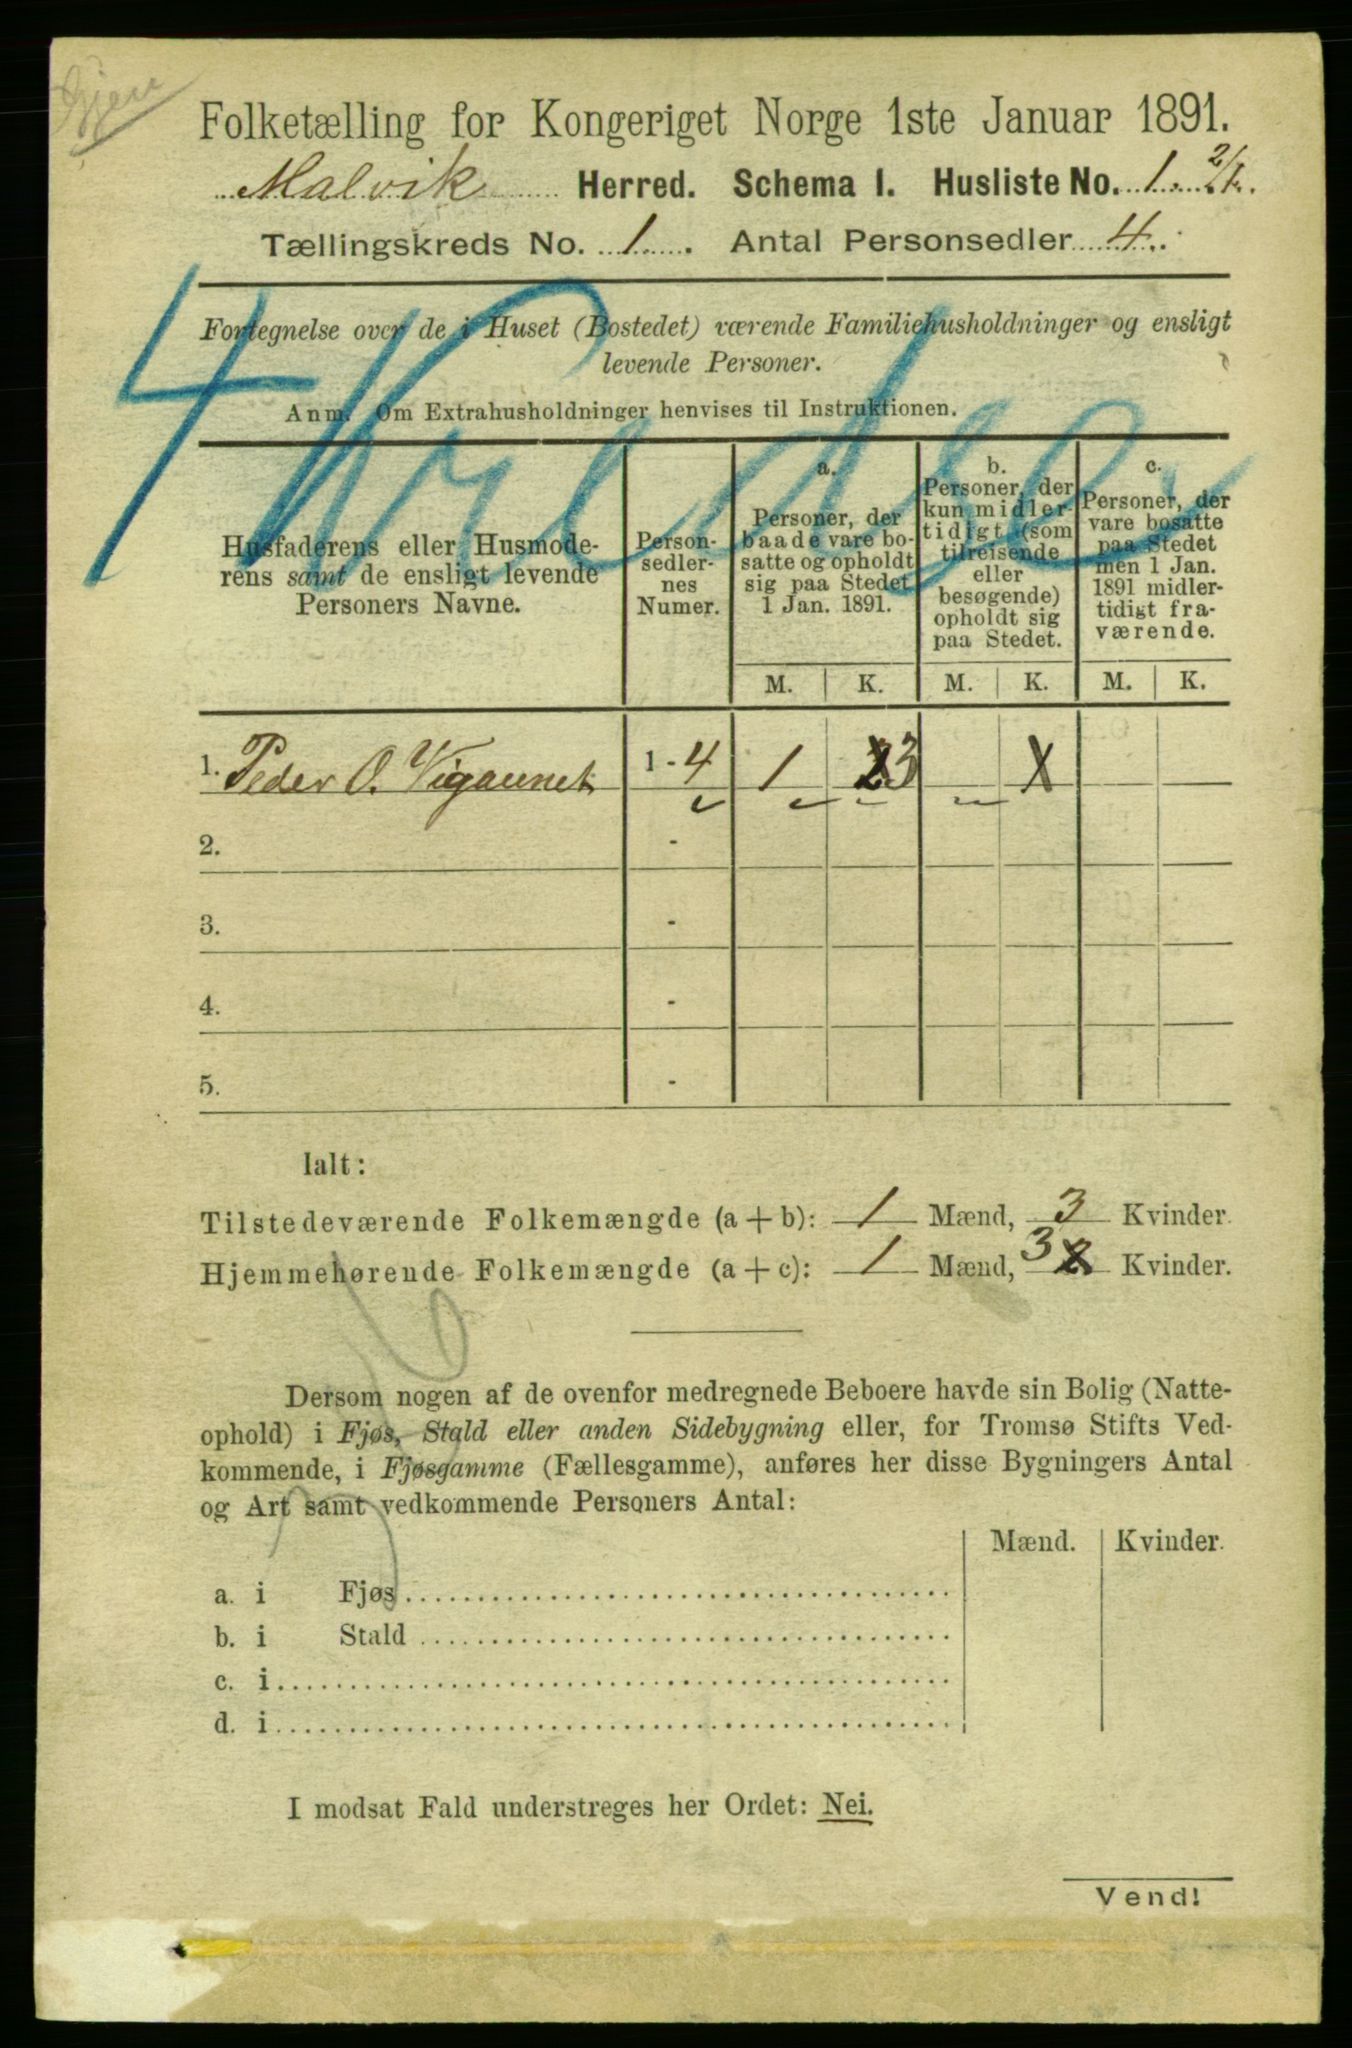 Gjen
Folketælling for Kongeriget Norge 1ste Januar 1891.
Malvik Herred. Schema I. Husliste No. 1. 2/1.
Tællingskreds No. 1. Antal Personsedler 4.
4 Kredse
Fortegnelse over de i Huset (Bostedet) værende Familiehusholdninger og ensligt
levende Personer.
Anm. Om Extrahusholdninger henvises til Instruktionen.
Husfaderens eller Husmode-
rens samt de ensligt levende
Personers Navne.
Person-
sedler-
nes
Numer.
a.
Personer, der
baade vare bo-
satte og opholdt
sig paa Stedet
1 Jan. 1891.
b.
Personer, der
kun midler-
tidigt (som
tilreisende
eller
besøgende)
opholdt sig
paa Stedet.
c.
Personer, der
vare bosatte
paa Stedet
men 1 Jan.
1891 midler-
tidigt fra-
værende.
M. K. M. K. M. K.
1. Peder O. Vigaunet 1 - 4 1 2 3 X
2. -
3. -
4. -
5. -
Ialt:
Tilstedeværende Folkemængde (a + b): 1 Mænd, 3 Kvinder.
Hjemmehørende Folkemængde (a + c): 1 Mænd, 3 2 Kvinder.
Dersom nogen af de ovenfor medregnede Beboere havde sin Bolig (Natte-
ophold) i Fjøs, Stald eller anden Sidebygning eller, for Tromsø Stifts Ved-
kommende, i Fjøsgamme (Fællesgamme), anføres her disse Bygningers Antal
og Art samt vedkommende Personers Antal:
Mænd. Kvinder.
a. i Fjøs
b. i Stald
c. i
d. i
I modsat Fald understreges her Ordet: Nei.
Vend!